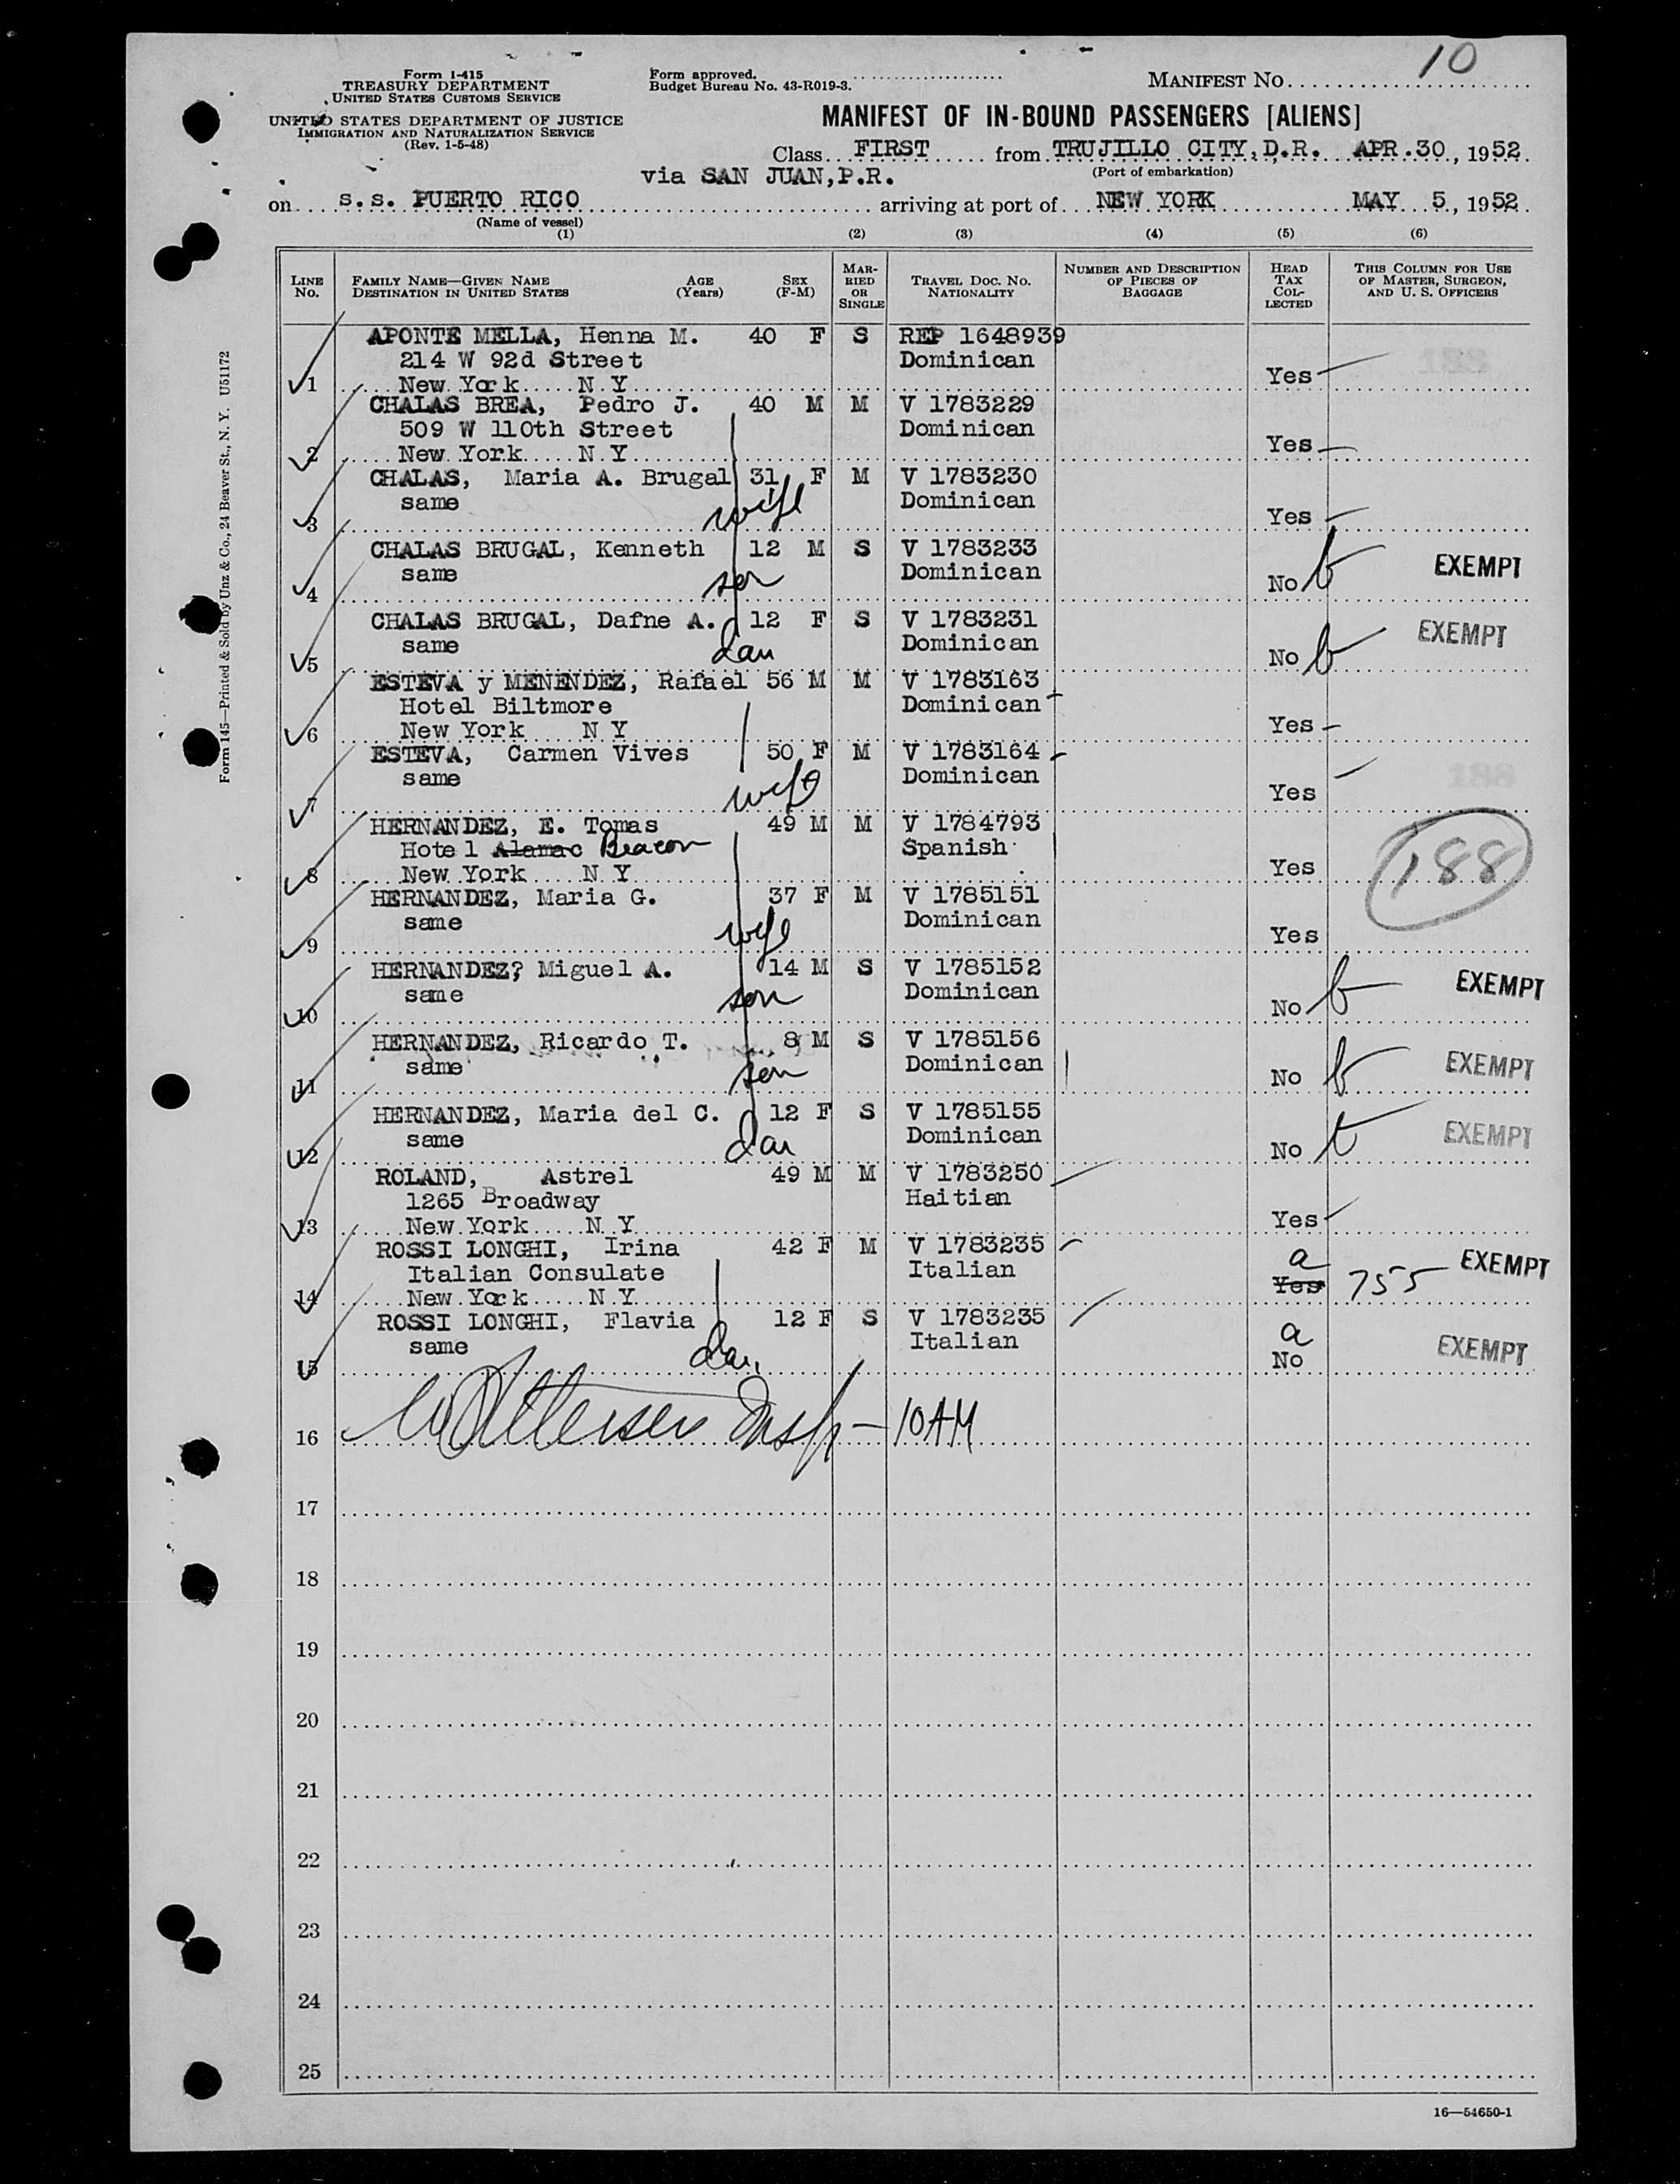 10
Form I-415
TREASURY DEPARTMENT
UNITED STATES CUSTOMS SERVICE
UNITED STATES DEPARTMENT OF JUSTICE
IMMIGRATION AND NATURALIZATION SERVICE
(Rev. 1-5-48)
Form approved.
Budget Bureau No. 43-R019-3.
MANIFEST NO.
MANIFEST OF IN-BOUND PASSENGERS [ALIENS]
Class FIRST from TRUJILLO CITY, D.R. APR. 30, 1952.
(Port of embarkation)
via SAN JUAN, P.R.
on s.s. PUERTO RICO arriving at port of NEW YORK MAY 5, 1952.
(Name of vessel)
(1) (2) (3) (4) (5) (6)
LINE No. FAMILY NAME—GIVEN NAME DESTINATION IN UNITED STATES AGE (Years) SEX (F-M) MARRIED OR SINGLE TRAVEL DOC. NO. NATIONALITY NUMBER AND DESCRIPTION OF PIECES OF BAGGAGE HEAD TAX COLLECTED THIS COLUMN FOR USE OF MASTER, SURGEON, AND U. S. OFFICERS
APONTE MELLA, Henna M. 40 F S REP 1648939
214 W 92d Street Dominican
1 New York N Y Yes
CHALAS BREA, Pedro J. 40 M M V 1783229
509 W 110th Street Dominican
2 New York N Y Yes
CHALAS, Maria A. Brugal 31 F M V 1783230
same wife Dominican
3 Yes
CHALAS BRUGAL, Kenneth 12 M S V 1783233
same son Dominican EXEMPT
4 No b
CHALAS BRUGAL, Dafne A. 12 F S V 1783231
same dau Dominican EXEMPT
5 No b
ESTEVA y MENENDEZ, Rafael 56 M M V 1783163
Hotel Biltmore Dominican
6 New York N Y Yes
ESTEVA, Carmen Vives 50 F M V 1783164
same wife Dominican
7 Yes
HERNANDEZ, E. Tomas 49 M M V 1784793
Hotel Alamac Beacon Spanish
8 New York N Y Yes 188
HERNANDEZ, Maria G. 37 F M V 1785151
same wife Dominican
9 Yes
HERNANDEZ? Miguel A. 14 M S V 1785152
same son Dominican EXEMPT
10 No b
HERNANDEZ, Ricardo T. 8 M S V 1785156
same son Dominican EXEMPT
11 No b
HERNANDEZ, Maria del C. 12 F S V 1785155
same dau Dominican EXEMPT
12 No
ROLAND, Astrel 49 M M V 1783250
1265 Broadway Haitian
13 New York N Y Yes
ROSSI LONGHI, Irina 42 F M V 1783235
Italian Consulate Italian a EXEMPT
14 New York N Y Yes 755
ROSSI LONGHI, Flavia 12 F S V 1783235
same dau. Italian a EXEMPT
15 No
16 Insp — 10AM
17
18
19
20
21
22
23
24
25
16—54650-1
Form 145—Printed & Sold by Unz & Co., 24 Beaver St., N. Y. U51172